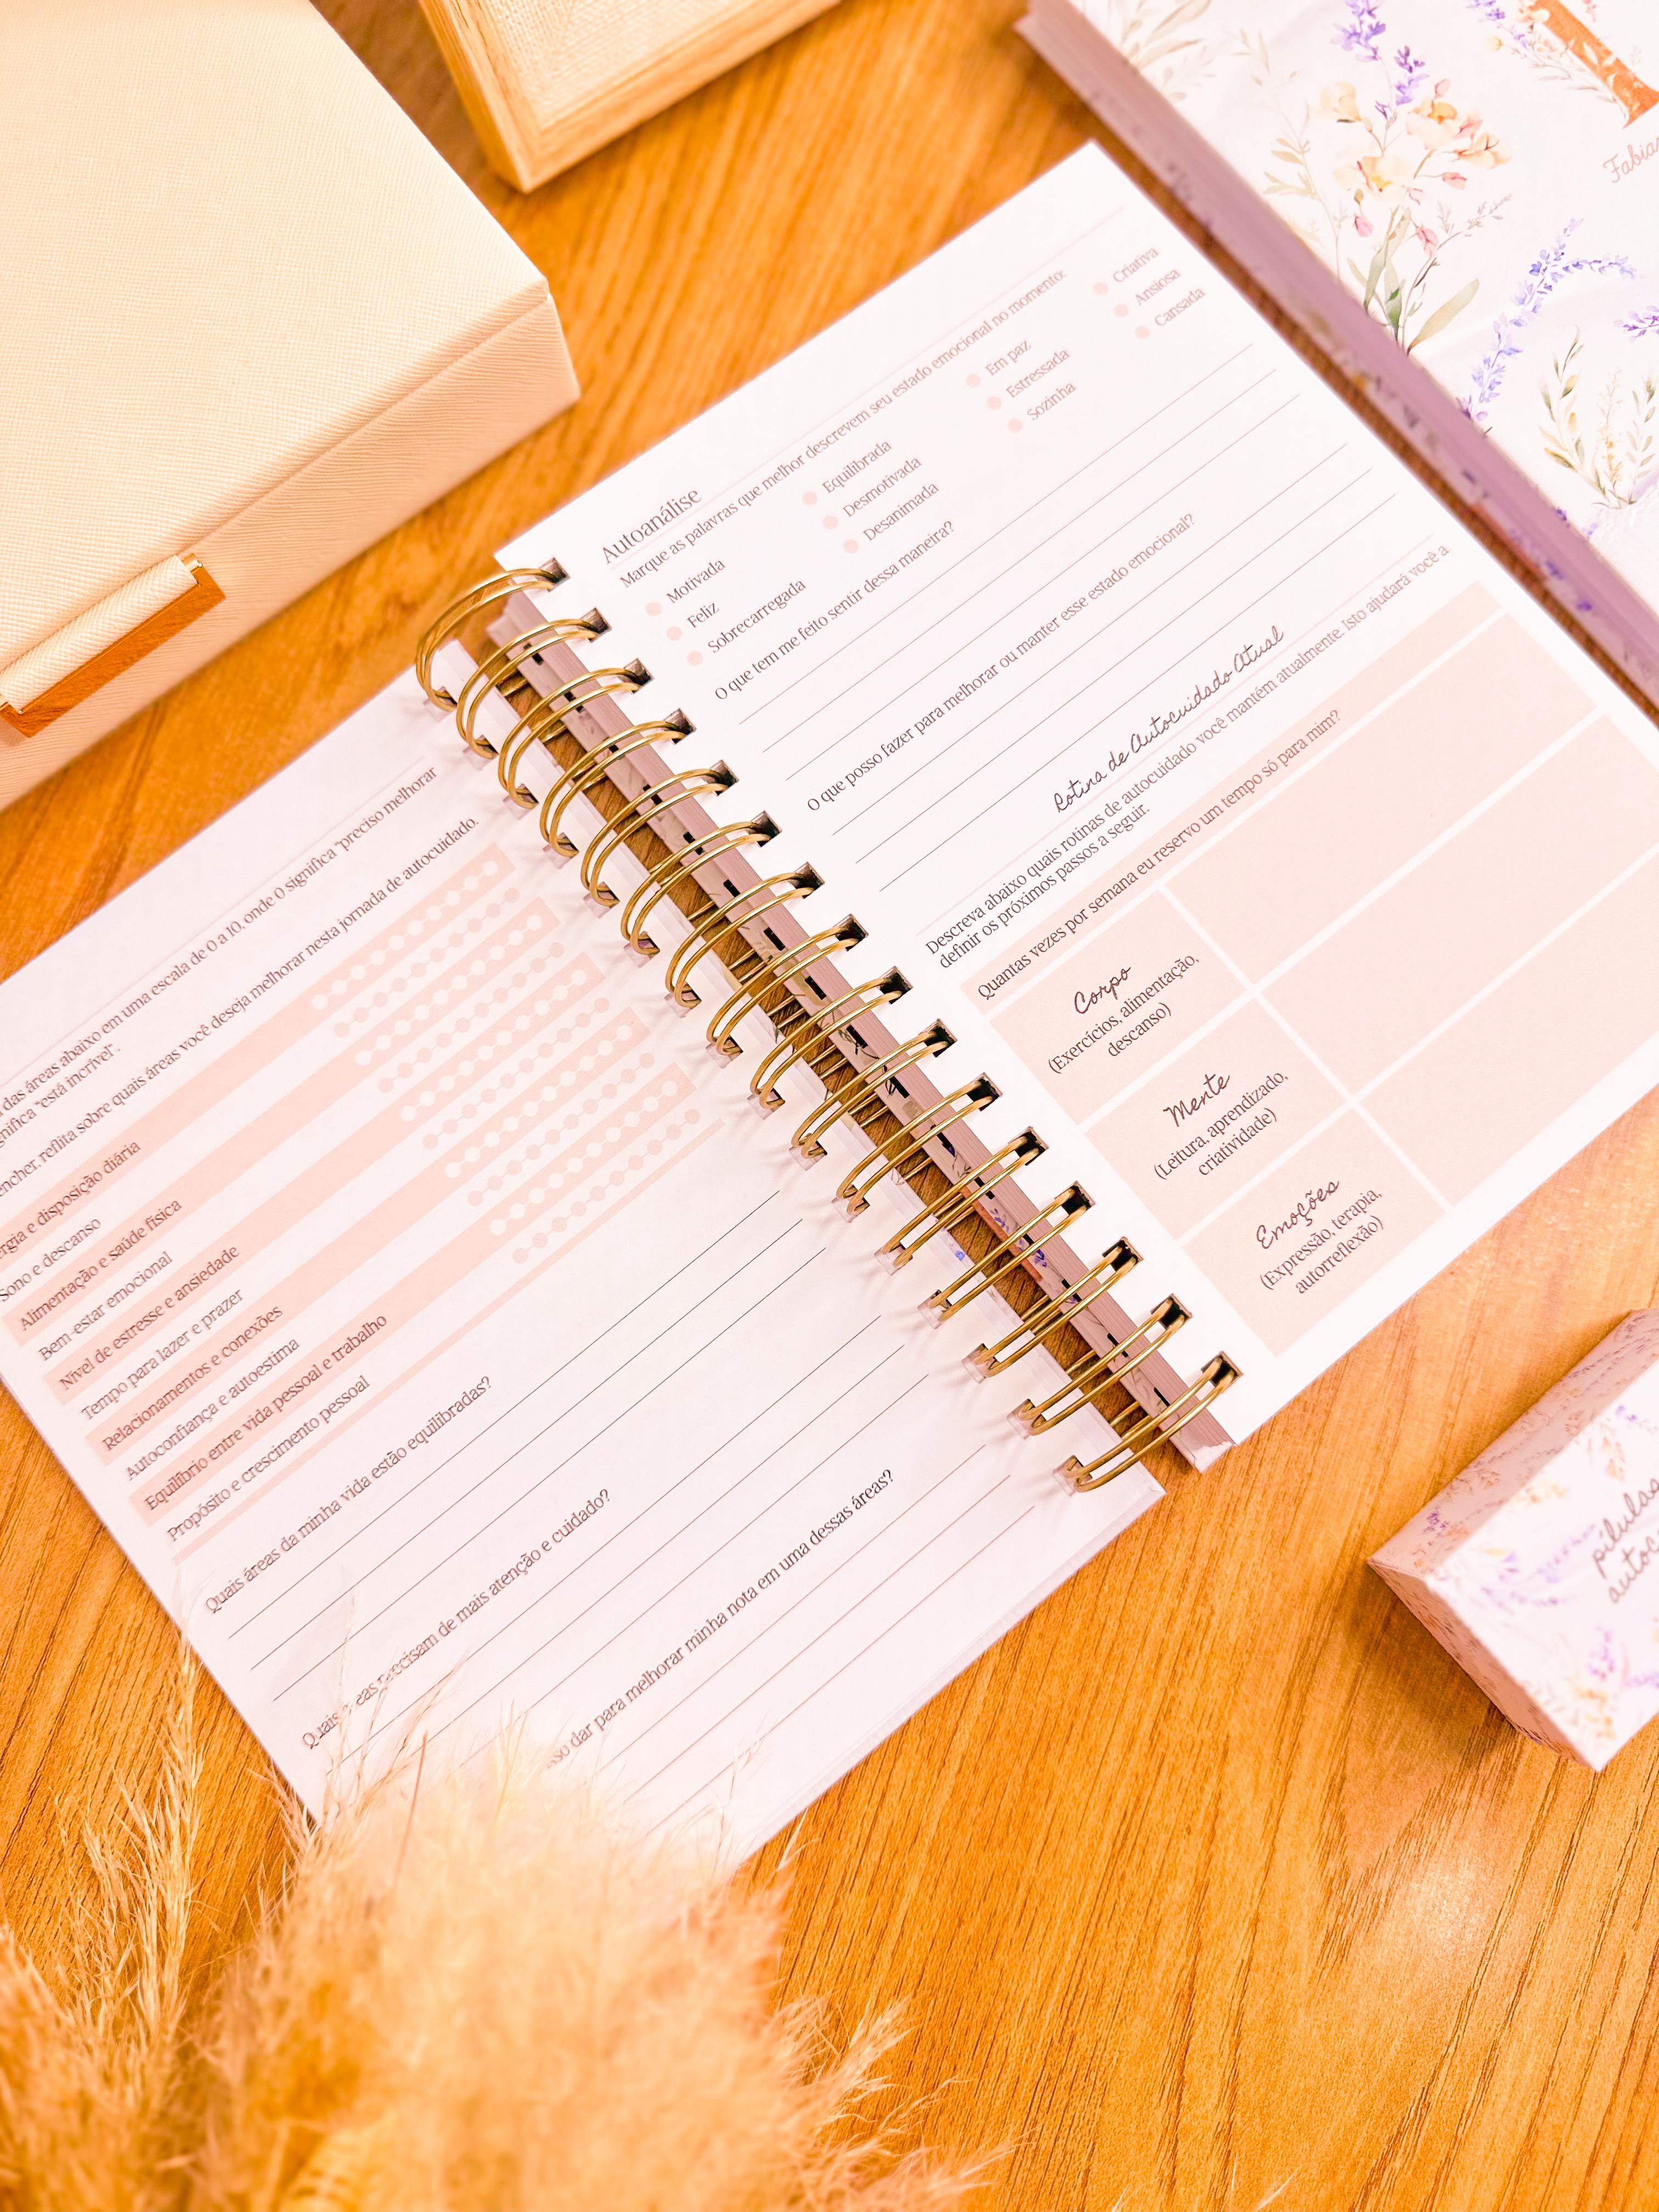 das áreas abaixo em uma escala de 0 a 10, onde 0 significa "preciso melhorar
"está incrível".
reflita sobre quais áreas você deseja melhorar nesta jornada de autocuidado.
e disposição diária
Sono e descanso
Alimentação e saúde física
Bem-estar emocional
Nível de estresse e ansiedade
Tempo para lazer e prazer
Relacionamentos e conexões
Autoconfiança e autoestima
Equilíbrio entre vida pessoal e trabalho
Propósito e crescimento pessoal
Quais áreas da minha vida estão equilibradas?
Quais precisam de mais atenção e cuidado?
dar para melhorar minha nota em uma dessas áreas?
Autoanálise
Marque as palavras que melhor descrevem seu estado emocional no momento:
Motivada Equilibrada Em paz Criativa
Feliz Desmotivada Estressada Ansiosa
Sobrecarregada Desanimada Sozinha Cansada
O que tem me feito sentir dessa maneira?
O que posso fazer para melhorar ou manter esse estado emocional?
Rotina de Autocuidado Atual
Descreva abaixo quais rotinas de autocuidado você mantém atualmente. Isto ajudará você a
definir os próximos passos a seguir.
Quantas vezes por semana eu reservo um tempo só para mim?
Corpo
(Exercícios, alimentação,
descanso)
Mente
(Leitura, aprendizado,
criatividade)
Emoções
(Expressão, terapia,
autorreflexão)
pílulas